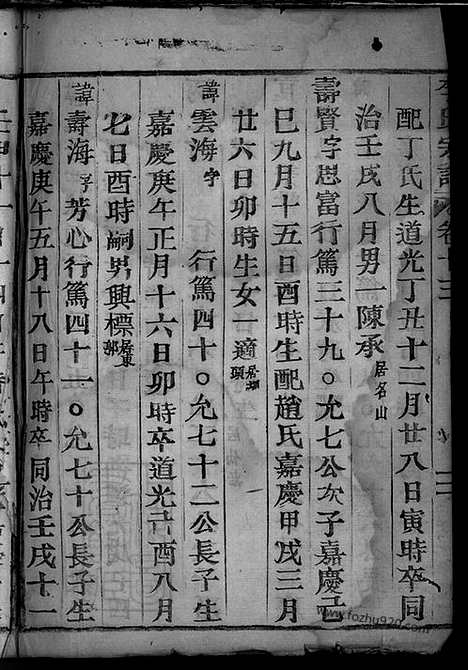 氏宗譜 卷十三
配丁氏生道光丁丑十二月廿八日寅時卒同
治壬戌八月男一陳承居名山
壽賢字思富行篤三十九○允七公次子嘉慶
巳九月十五日酉時生配趙氏嘉慶甲戌三月
廿六日卯時生女一適
諱雲海字 行篤四十○允七十二公長子生
嘉慶庚午正月十六日卯時卒道光己酉八月
七日酉時嗣男興標居東郭
諱壽海字芳心行篤四十一○允七十公長子生
嘉慶庚午五月十八日午時卒同治壬戌十一
www.fozhu920.com